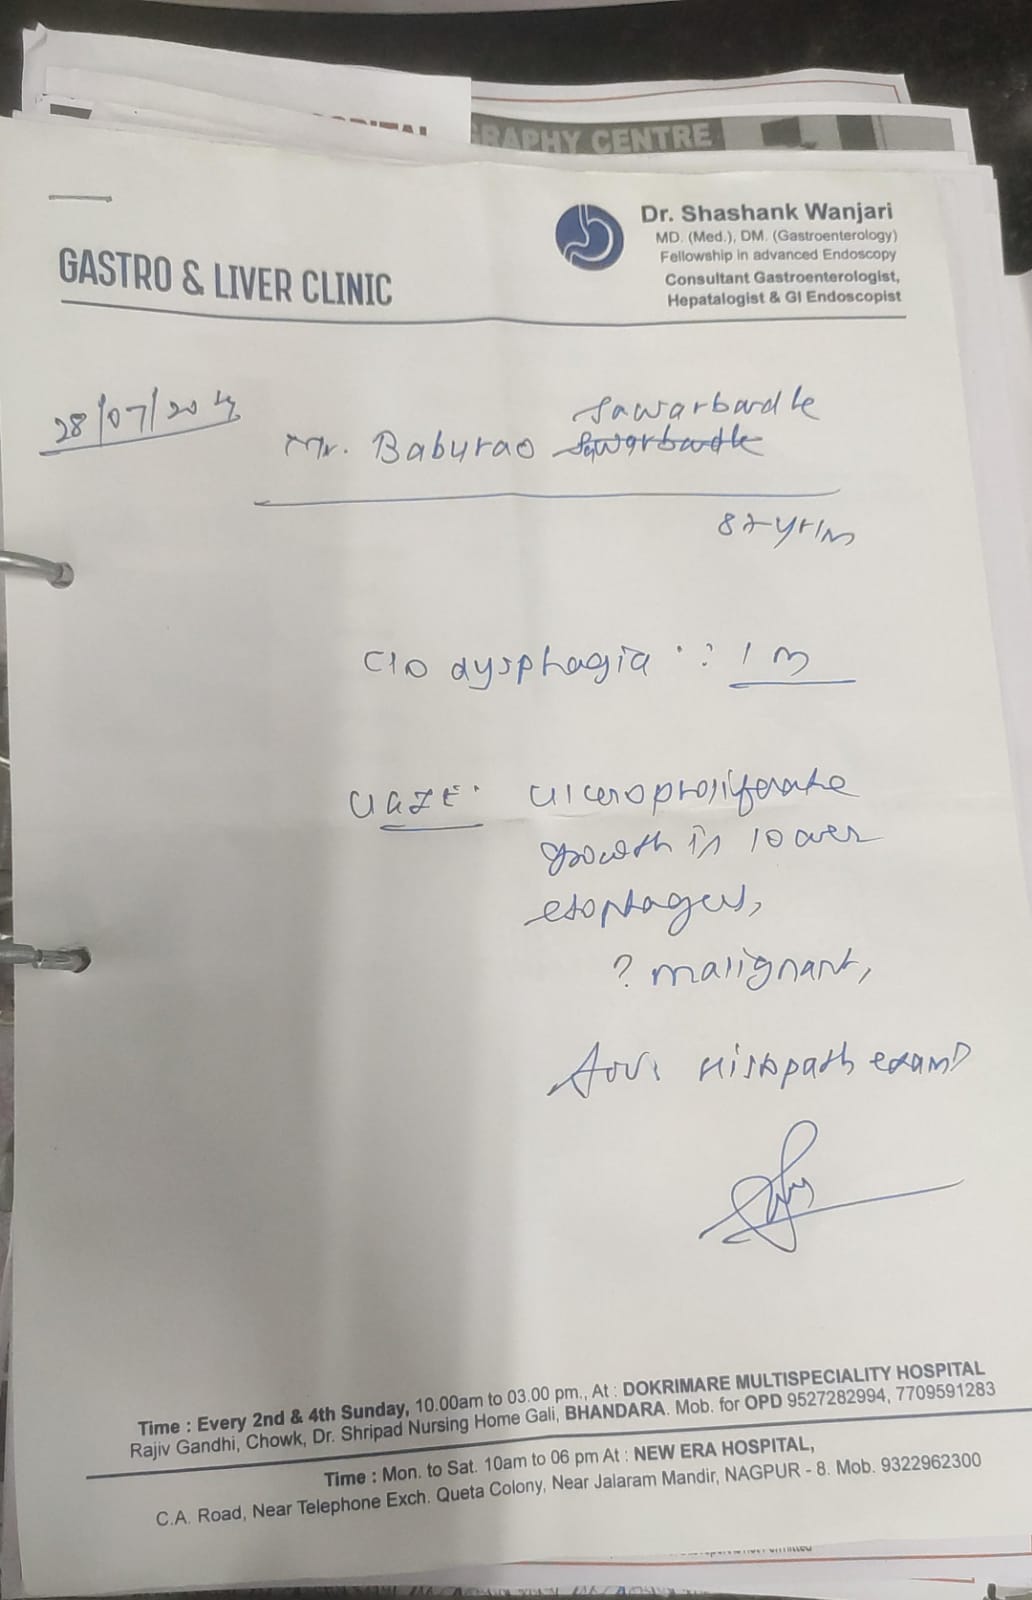 GRAPHY CENTRE
GASTRO & LIVER CLINIC
Dr. Shashank Wanjari
MD. (Med.), DM. (Gastroenterology)
Fellowship in advanced Endoscopy
Consultant Gastroenterologist,
Hepatalogist & GI Endoscopist
28/07/20
Sawarbandle
Mr. Baburao
82 yr/M
C/O dysphagia : 1 m
UGIE: ulceroproliferate
growth in lower
esophagus,
? malignant,
Adv: Histopath exam
Time : Every 2nd & 4th Sunday, 10.00am to 03.00 pm., At : DOKRIMARE MULTISPECIALITY HOSPITAL
Rajiv Gandhi, Chowk, Dr. Shripad Nursing Home Gali, BHANDARA. Mob. for OPD 9527282994, 7709591283
Time : Mon. to Sat. 10am to 06 pm At : NEW ERA HOSPITAL,
C.A. Road, Near Telephone Exch. Queta Colony, Near Jalaram Mandir, NAGPUR - 8. Mob. 9322962300